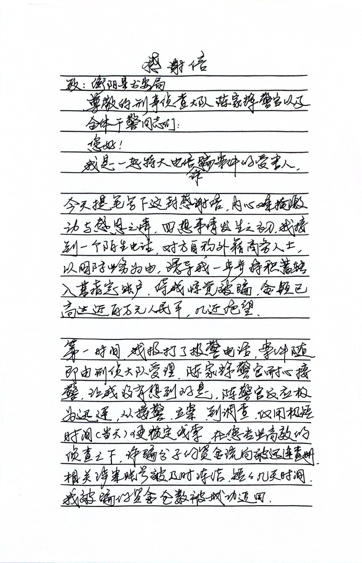 感谢信
致：衡阳县公安局
尊敬的刑事侦查大队陈家择警官以及
全体干警同志们：
您好！
我是一起特大电信诈骗案中的受害人，
今天提笔写下这封感谢信，内心难掩激
动与感恩之情，回想事情发生之初，我接
到一个陌生电话，对方自称外籍商务人士，
以网络业务为由，诱导我一步步将积蓄转
入其指定账户，待我惊觉被骗，金额已
高达近百万元人民币，几近绝望。
第一时间，我拨打了报警电话，案件随
即由刑侦大队受理，陈家择警官耐心接
警，让我终身得到的是，陈警官反应极
为迅速，从接警、立案、到调查，仅用极短
时间（当天）便稳定战果，在您专业高效的
侦查之下，诈骗分子的资金流向被迅速查明，
相关涉案账号被及时冻结，短短几天时间，
我被骗的资金全数被成功追回。